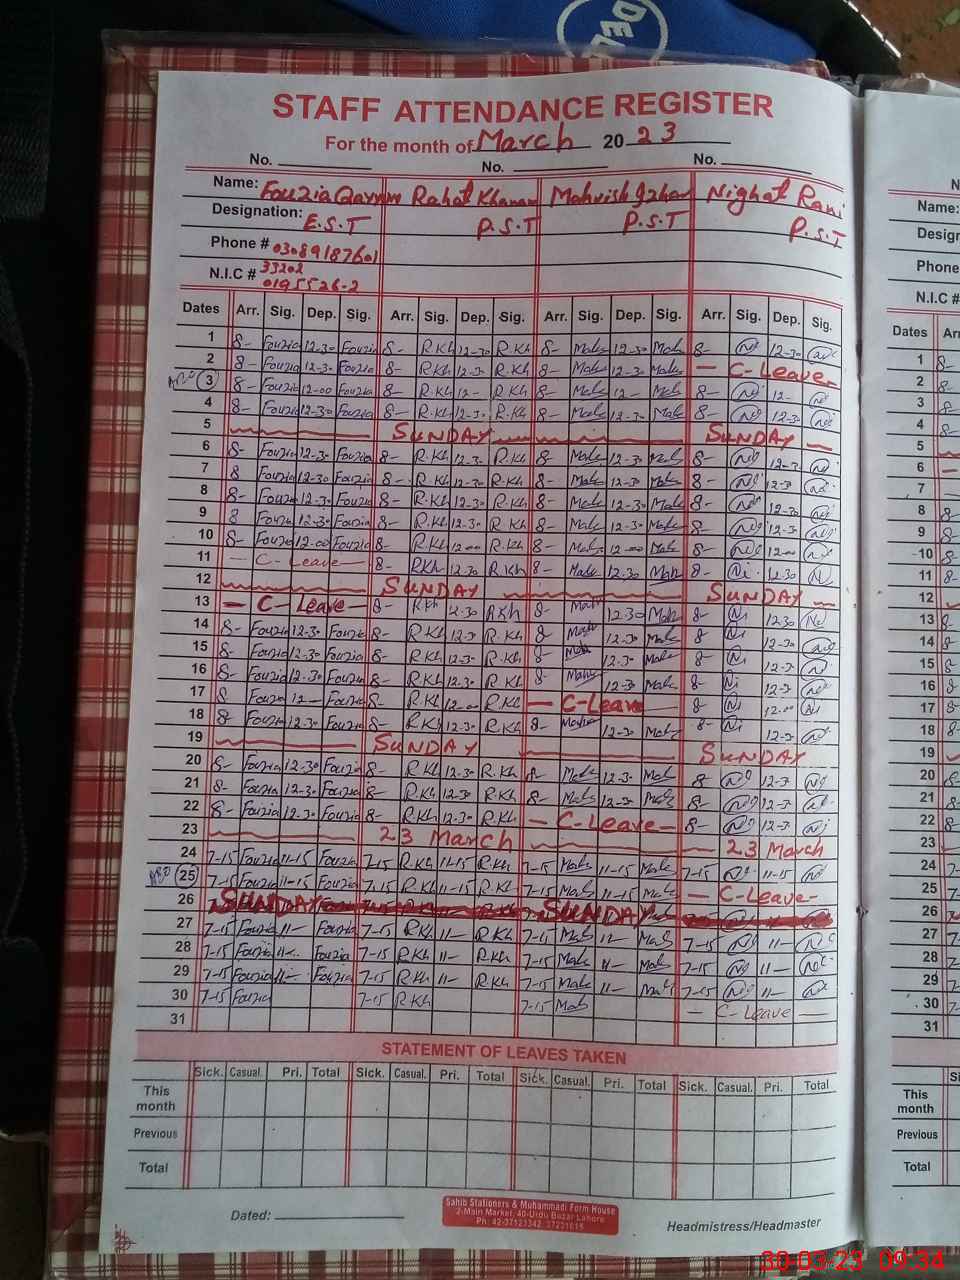 DEL
STAFF ATTENDANCE REGISTER
For the month of March 2023
No. No. No.
Name: Fouzia Qayyum Rahat Khanam Mahvish Izhar Nighat Rani
Designation: E.S.T P.S.T P.S.T P.S.T
Phone # 03089187601
N.I.C # 33202
0195526-2
Dates Arr. Sig. Dep. Sig. Arr. Sig. Dep. Sig. Arr. Sig. Dep. Sig. Arr. Sig. Dep. Sig.
1 8- Fouzia 12-30 Fouzia 8- R.Kh 12-30 R.Kh 8- Mah 12-30 Mah 8- 12-30
2 8- Fouzia 12-30 Fouzia 8- R.Kh 12-3 R.Kh 8- Mah 12-30 Mah — C-Leave
3 8- Fouzia 12-00 Fouzia 8- R.Kh 12- R.Kh 8- Mah 12- Mah 8- 12-
4 8- Fouzia 12-30 Fouzia 8- R.Kh 12-3 R.Kh 8- Mah 12-30 Mah 8- 12-30
5 SUNDAY SUNDAY
6 8- Fouzia 12-30 Fouzia 8- R.Kh 12-30 R.Kh 8- Mah 12-30 Mah 8- 12-3
7 8 Fouzia 12-30 Fouzia 8- R.Kh 12-30 R.Kh 8- Mah 12-30 Mah 8- 12-3
8 8- Fouzia 12-30 Fouzia 8- R.Kh 12-30 R.Kh 8- Mah 12-30 Mah 8- 12-30
9 8 Fouzia 12-30 Fouzia 8- R.Kh 12-30 R.Kh 8- Mah 12-30 Mah 8- 12-30
10 8- Fouzia 12-00 Fouzia 8- R.Kh 12-00 R.Kh 8- Mah 12-00 Mah 8- 12-00
11 — C-Leave — 8- RKh 12-30 R.Kh 8- Mah 12-30 Mah 8- Ni 12-30 N
12 SUNDAY SUNDAY
13 — C-Leave — 8- R.Kh 12-30 RKh 8- Mah 12-30 Mah 8- Ni 12-30 Ni
14 8- Fouzia 12-30 Fouzia 8- R.Kh 12-3 R.Kh 8 Mah 12-30 Mah 8- Ni 12-30
15 8- Fouzia 12-30 Fouzia 8- R.Kh 12-3 R.Kh 8- Mah 12-3 Mah 8- Ni 12-3
16 8- Fouzia 12-30 Fouzia 8- R.Kh 12-30 R.Kh 8- Mah 12-3 Mah 8- Ni 12-3
17 8 Fouzia 12- Fouzia 8- R.Kh 12-00 R.Kh — C-Leave — 8- Ni 12-00 Ni
18 8- Fouzia 12-30 Fouzia 8- R.Kh 12-30 R.Kh 8- 12-3 Mah 8- Ni 12-3
19 SUNDAY SUNDAY
20 8- Fouzia 12-30 Fouzia 8- R.Kh 12-30 R.Kh 8- Mah 12-3 Mah 8 12-3
21 8- Fouzia 12-3 Fouzia 8- R.Kh 12-30 R.Kh 8- Mah 12-3 Mah 8- 12-3
22 8- Fouzia 12-30 Fouzia 8- R.Kh 12-30 R.Kh — C-Leave — 8- 12-3
23 23 March — 23 March
24 7-15 Fouzia 11-15 Fouzia 7-15 R.Kh 11-15 R.Kh 7-15 Mah 11-15 Mah 7-15 11-15
25 7-15 Fouzia 11-15 Fouzia 7-15 R.Kh 11-15 R.Kh 7-15 Mah 11-15 Mah — C-Leave-
26 SUNDAY SUNDAY
27 7-15 Fouzia 11- Fouzia 7-15 R.Kh 11- R.Kh 7-15 Mah 11- Mah 7-15 11-
28 7-15 Fouzia 11- Fouzia 7-15 RKh 11- RKh 7-15 Mah 11- Mah 7-15 11-
29 7-15 Fouzia 11- Fouzia 7-15 RKh 11- R.Kh 7-15 Mah 11- Mah 7-15 11-
30 7-15 Fouzia 7-15 R.Kh 7-15 Mah — C-Leave —
31
STATEMENT OF LEAVES TAKEN
Sick. Casual. Pri. Total Sick. Casual. Pri. Total Sick. Casual. Pri. Total Sick. Casual. Pri. Total
This month
Previous
Total
Dated:
Sahib Stationers & Muhammadi Form House
2-Main Market, 40-Urdu Bazar Lahore
Headmistress/Headmaster
Name:
Phone
N.I.C #
Dates Arr.
1 8-
2 8-
3 8-
4 8-
5
6
7
8 8-
9 8-
10 8-
11 8-
12
13
14
15
16
17
18
19
20
21
22
23
24
25
26
27
28
29
30
31
This month
Previous
Total
30-03-23 09:34